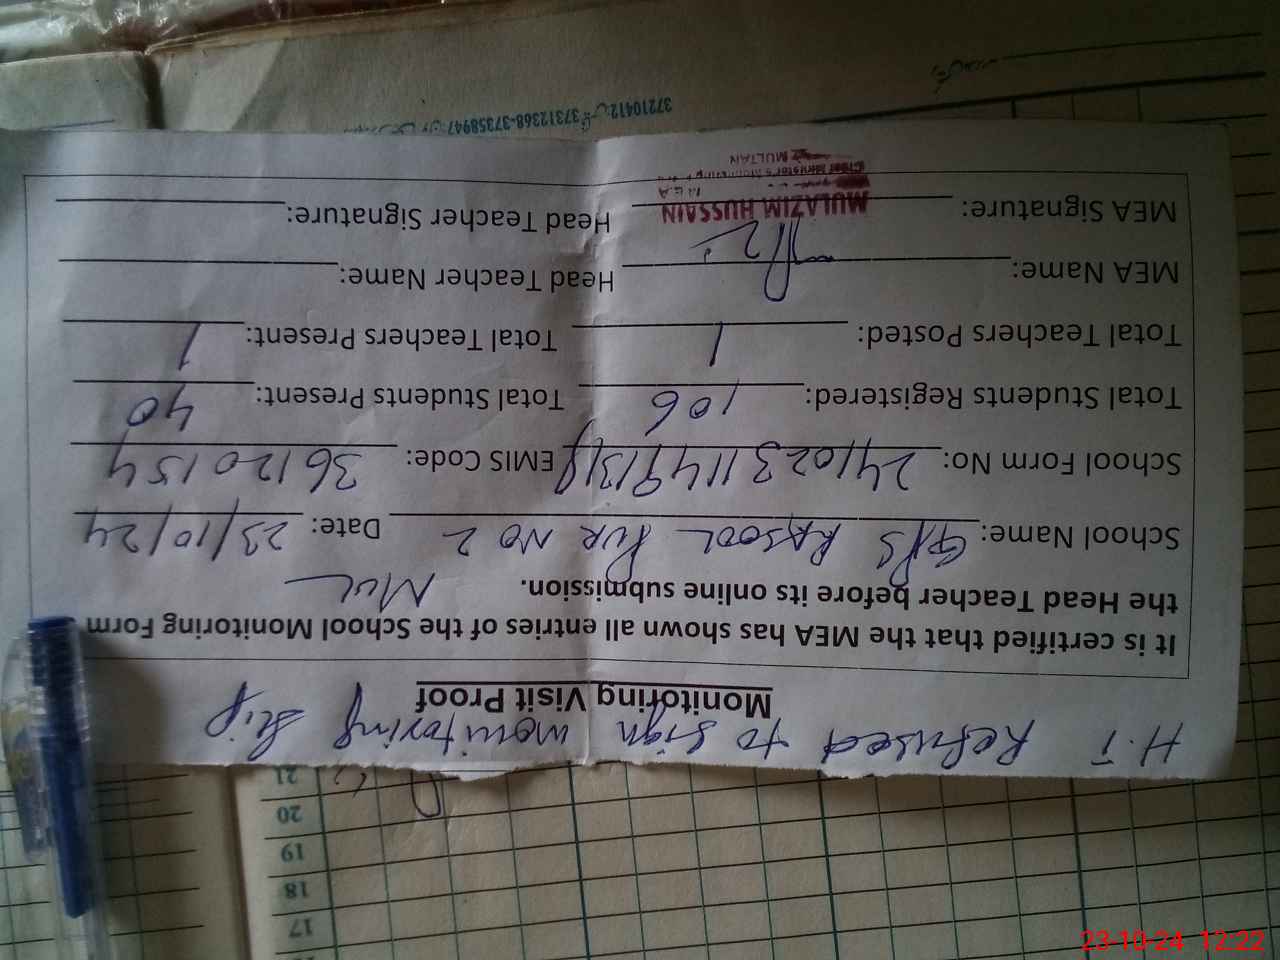 H.T Refused to sign monitoring slip
Monitoring Visit Proof
It is certified that the MEA has shown all entries of the School Monitoring Form
the Head Teacher before its online submission. MUL
School Name: G/PS RASOOL PUR NO 2 Date: 23/10/24
School Form No: EMIS Code: 36120154
Total Students Registered: 106 Total Students Present: 40
Total Teachers Posted: 1 Total Teachers Present: 1
MEA Name: Head Teacher Name:
MEA Signature: Head Teacher Signature:
MULAZIM HUSSAIN
M.E.A
Chief Minister's Monitoring
MULTAN
37210412 37312368-37358947
21
20
19
18
17
23-10-24 12:22